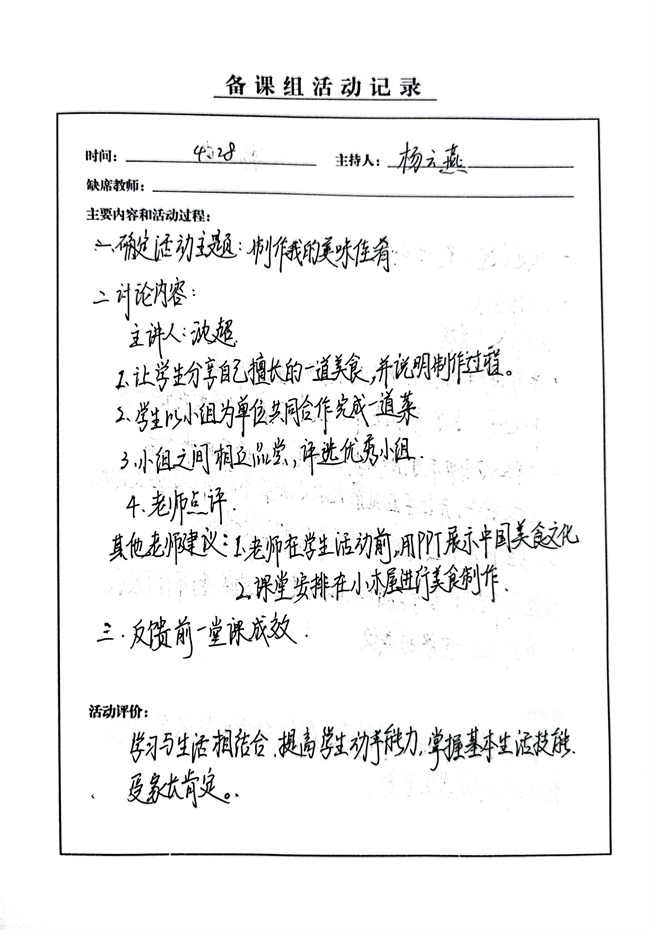 备课组活动记录
时间：4.28 主持人：杨云燕
缺席教师：
主要内容和活动过程：
一、确定活动主题：制作我的美味佳肴
二 讨论内容：
主讲人：沈超
1.让学生分享自己擅长的一道美食，并说明制作过程。
2.学生以小组为单位共同合作完成一道菜
3.小组之间相互品尝，评选优秀小组.
4.老师点评.
其他老师建议：1.老师在学生活动前，用PPT展示中国美食文化
2.课堂安排在小木屋进行美食制作.
三.反馈前一堂课成效.
活动评价：
学习与生活相结合，提高学生动手能力，掌握基本生活技能.
受家长肯定。